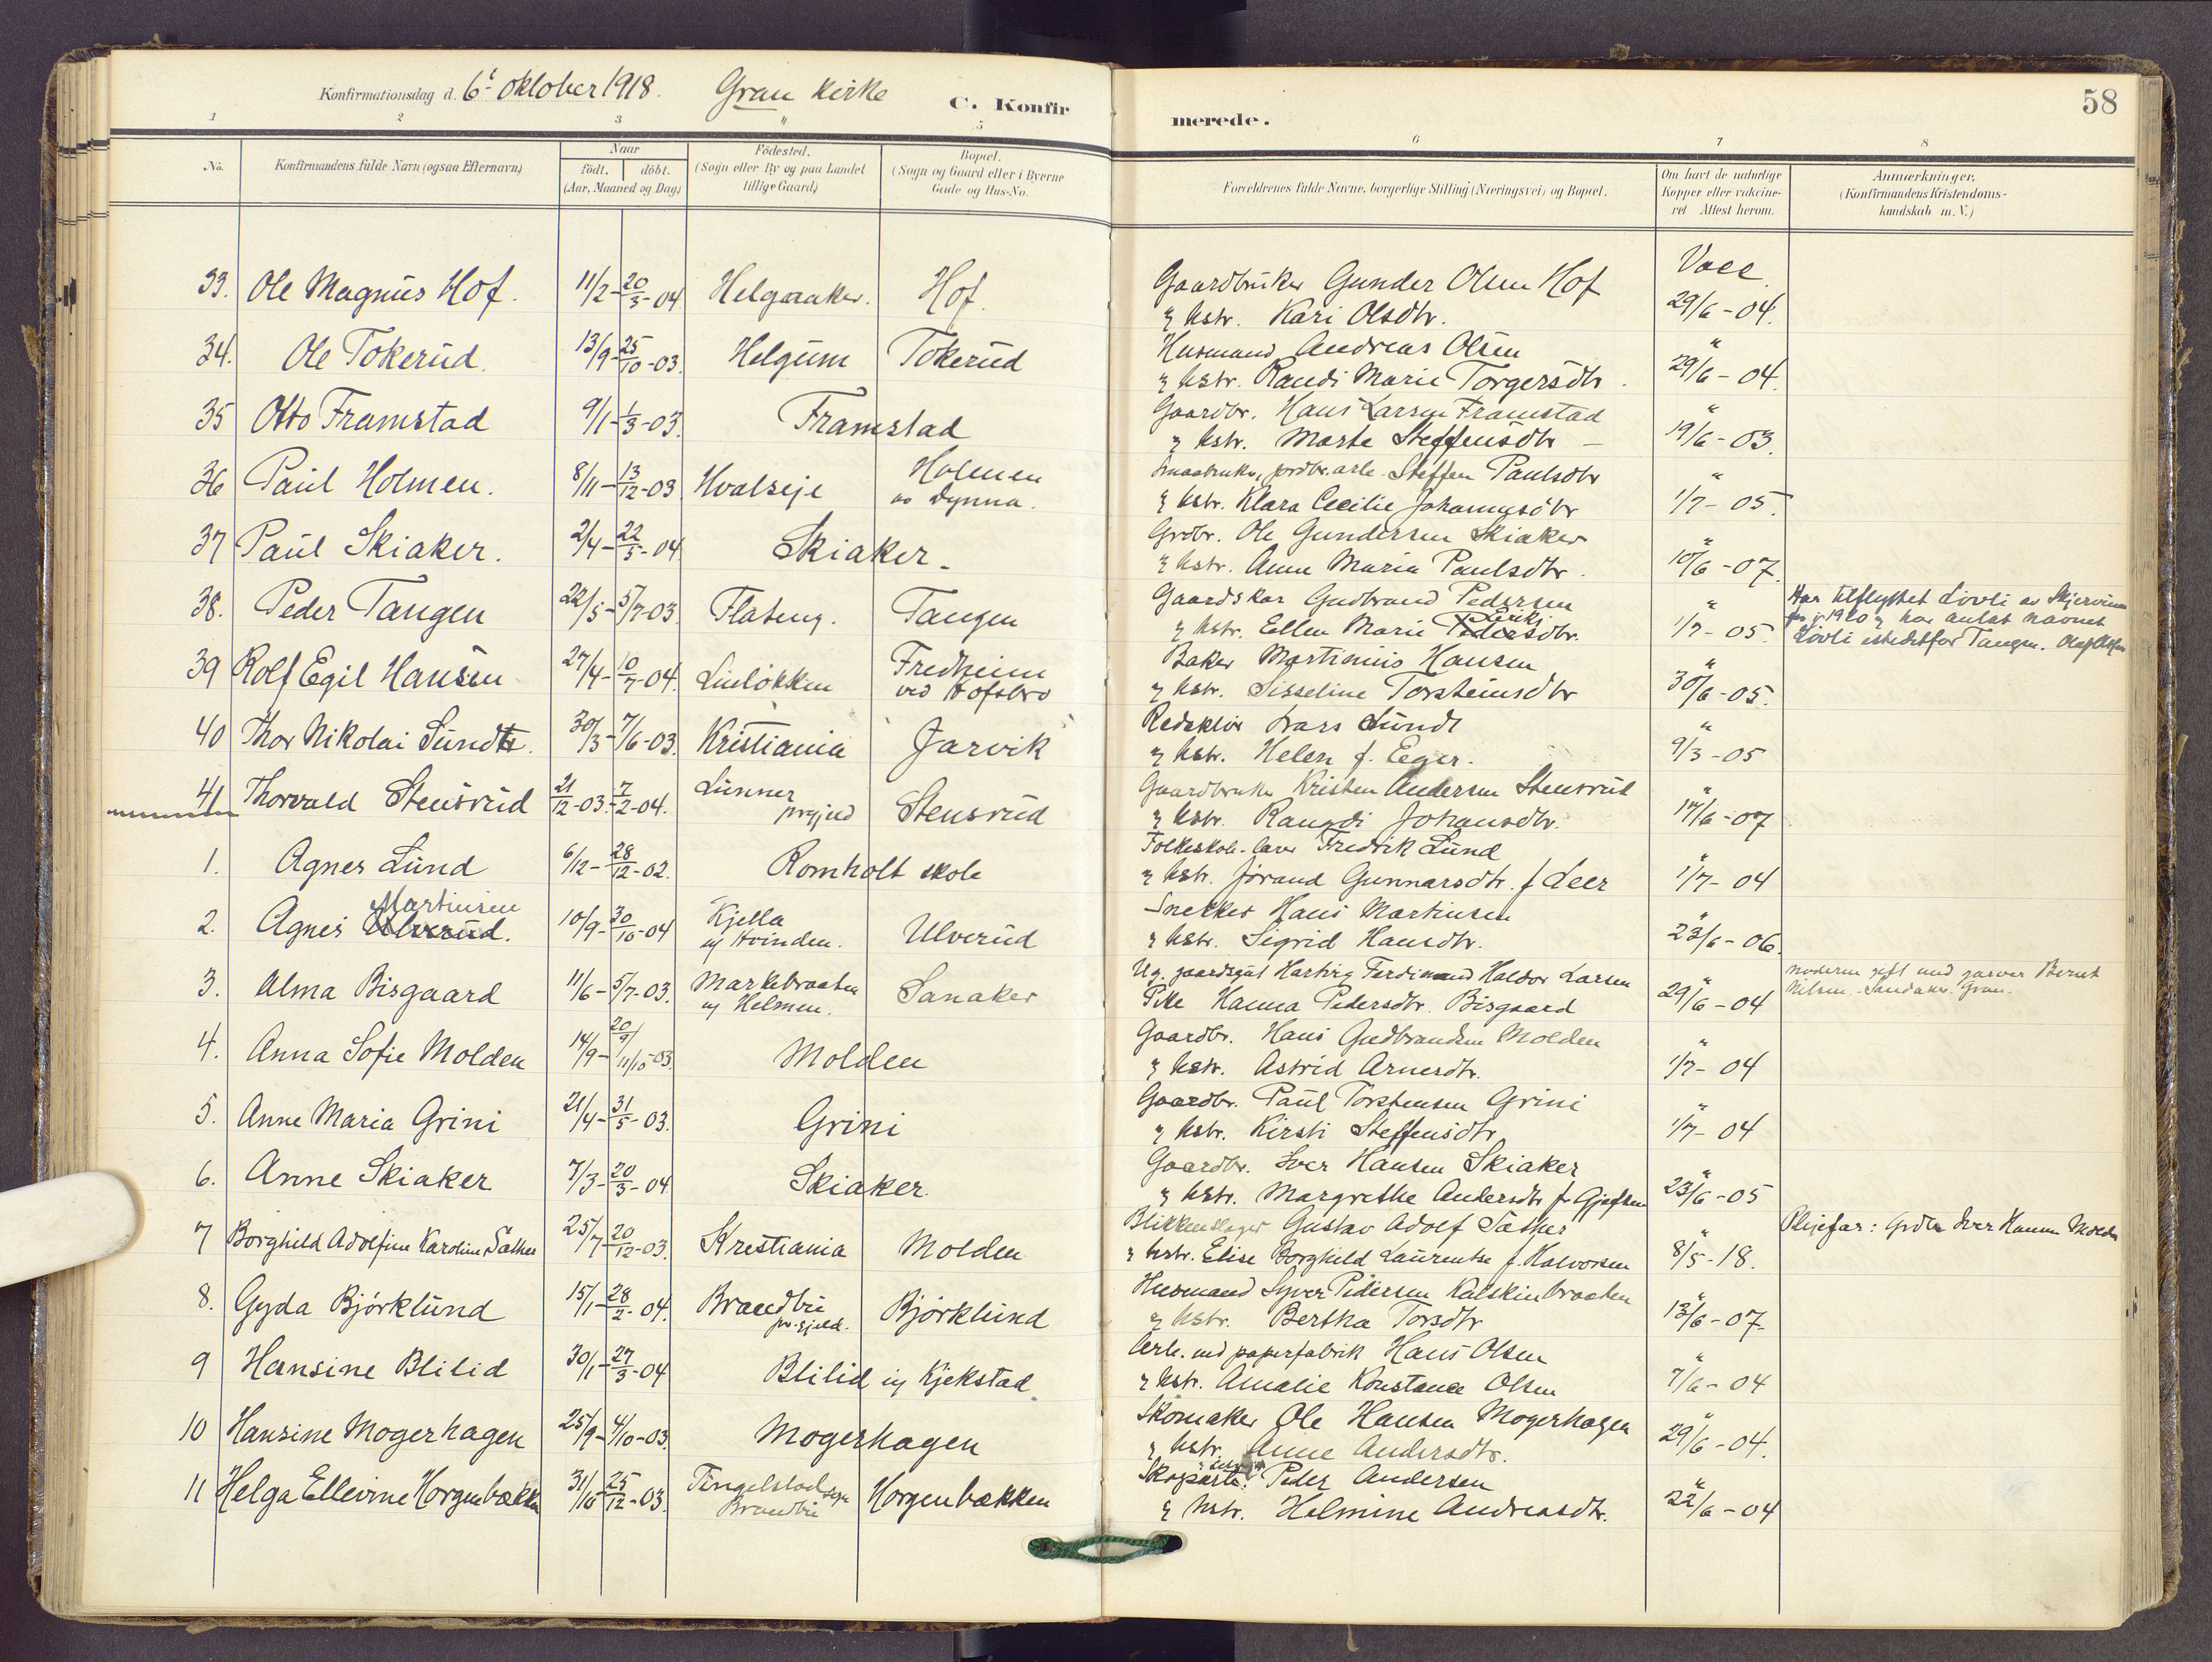 Konfirmationsdag d. 6te oktober 1918. Gran kirke C. Konfirmerede. 58
1 2 3 4 5 6 7 8
No. Konfirmandens fulde Navn (ogsaa Efternavn) Naar født. døbt. (Aar, Maaned og Dag.) Fødested. (Sogn eller By og paa Landet tillige Gaard) Bopæl. (Sogn og Gaard eller i Byerne Gade og Hus-No. Forældrenes fulde Navne, borgerlige Stilling (Næringsvei) og Bopæl. Om havt de naturlige Kopper eller vaccineret Attest herom. Anmærkninger. (Konfirmandens Kristendomskundskab m. V.)
33. Ole Magnus Hof. 11/2 - 20/3 - 04 Helgaaker. Hof. Gaardbruker Gunder Olsen Hof Vacc.
& hstr. Kari Olsdtr. 29/6 - 04.
34. Ole Tokerud. 13/9 - 25/10 - 03. Helgum Tokerud Husmand Andreas Olsen "
& hstr. Randi Marie Torgersdtr. 29/6 - 04.
35 Otto Framstad 9/1 - 1/3 - 03. Framstad Gaardbr. Hans Larsen Framstad "
& hstr. Marte Steffensdtr - 19/6 - 03.
36 Paul Holmen. 8/11 - 13/12 - 03 Hvalseje Holmen av Dynna. Smaabruker, Steffen Paulsdtr "
& hstr. Klara Cecilie Johannesdtr 1/7 - 05.
37 Paul Skiaker. 2/4 - 22/5 - 04 Skiaker. Grdbr. Ole Gundersen Skiaker "
& hstr. Anne Maria Paulsdtr. 10/6 - 07.
38. Peder Tangen 22/5 - 5/7 - 03. Flateng. Tangen Gaardskar Gudbrand Pedersen " Har tilflyttet Lövli av Skjervum
& hstr. Ellen Marie Pedersdtr. Eriks 1/7 - 05. i 1920 & har antat navnet
Lövli istedetfor Tangen.
39 Rolf Egil Hansen 27/4 - 10/7 - 04. Linløkken Fredheim ved Hofsbro Baker Martinius Hansen "
& hstr. Sisseline Torsteinsdtr 30/6 - 05.
40 Thor Nikolai Sundt. 30/3 - 7/6 - 03. Kristiania Jarvik Redaktør Lars Sundt "
& hstr. Helen f. Eger. 9/3 - 05
41 Thorvald Stensrud 21/12 - 03. - 7/2 - 04. Lunner prgjed Stensrud Gaardbruker Kristen Andersen Stensrud "
& hstr. Rangdi Johansdtr. 17/6 - 07
1. Agnes Lund 6/12 - 28/12 - 02. Romholt skole Folkeskole-lærer Fredrik Lund "
& hstr. Jørand Gunnarsdtr. f Leer 1/7 - 04
2. Agnes Ulverud. Martinsen 10/9 - 30/10 - 04 Kjella Ulverud Snekker Hans Martinsen "
& hstr. Sigrid Hansdtr. 23/6 - 06.
3. Alma Bisgaard 11/6 - 5/7 - 03. Markebraaten u/ Helmen. Sanaker Ug. gaardsgut Hartvig Ferdinand Haldor Larsen " moderen gift med garver Bernt
Pike Hanna Pedersdtr. Bisgaard 29/6 - 04 Nilsen. Sandaker. Gran.
4. Anna Sofie Molden 14/9 - 20/9 / 11/10 - 03. Molden Gaardbr. Hans Gudbrandsen Molden "
& hstr. Astrid Arnesdtr. 1/7 - 04
5. Anne Maria Grini 21/4 - 31/5 - 03. Grini Gaardbr. Paul Torstensen Grini "
& hstr. Kirsti Steffensdtr 1/7 - 04
6. Anne Skiaker 7/3 - 20/3 - 04 Skiaker. Gaardbr. Iver Hansen Skiaker "
& hstr. Margrethe Andersdtr f. Gjefsen 23/6 - 05
7 Borghild Adolfine Karoline Sæther 25/7 - 20/12 - 03. Kristiania Molden Blikkenslager Gustav Adolf Sæther " Pleiefar: Grdbr Iver Hansen Molden
& hstr. Elise Borghild Laurentse f. Halvorsen 8/5 - 18.
8. Gyda Björklund 15/1 - 28/2 - 04. Brandbu pr.gjeld. Björklund Husmand Syver Pedersen Kalskinbraaten "
& hstr. Bertha Torsdtr 13/6 - 07.
9 Hansine Blilid 30/1 - 27/3 - 04 Blilid u/ Kjekstad. Arb. ved papirfabrik Hans Olsen "
& hstr. Amalie Konstance Olsen 7/6 - 04
10 Hansine Mogerhagen 25/9 - 4/10 - 03. Mogerhagen Skomaker Ole Hansen Mogerhagen "
& hstr. Anne Andersdtr. 29/6 - 04.
11 Helga Ellevine Horgenbækken 31/10 - 25/12 - 03. Tingelstad sogn Brandbu Horgenbækken Peder Andersen "
& hstr. Helmine Andreasdtr. 22/6 - 04